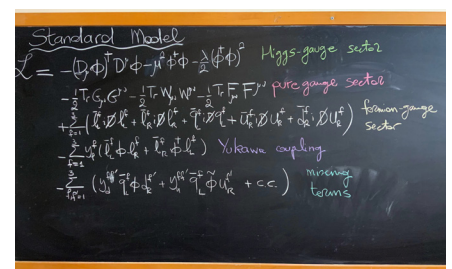 Standard Model
ℒ = -(D_μ ϕ)^† D^μ ϕ - μ² ϕ^† ϕ - λ/2 (ϕ^† ϕ)² Higgs-gauge sector
-1/2 Tr G_μν G^μν - 1/2 Tr W_μν W^μν - 1/2 Tr F_μν F^μν pure gauge sector
+ Σ_{f=1}^{3} (l̄_L^f i D̸ l_L^f + l̄_R^f i D̸ l_R^f + q̄_L^f i D̸ q_L^f + ū_R^f i D̸ u_R^f + d̄_R^f i D̸ d_R^f) fermion-gauge
sector
- Σ_{f=1}^{3} y_l^f (l̄_L^f ϕ l_R^f + l̄_R^f ϕ^† l_L^f) Yukawa coupling
- Σ_{f,f'=1}^{3} (y_d^{ff'} q̄_L^f ϕ d_R^{f'} + y_u^{ff'} q̄_L^f ϕ̃ u_R^{f'} + c.c.) missing
terms